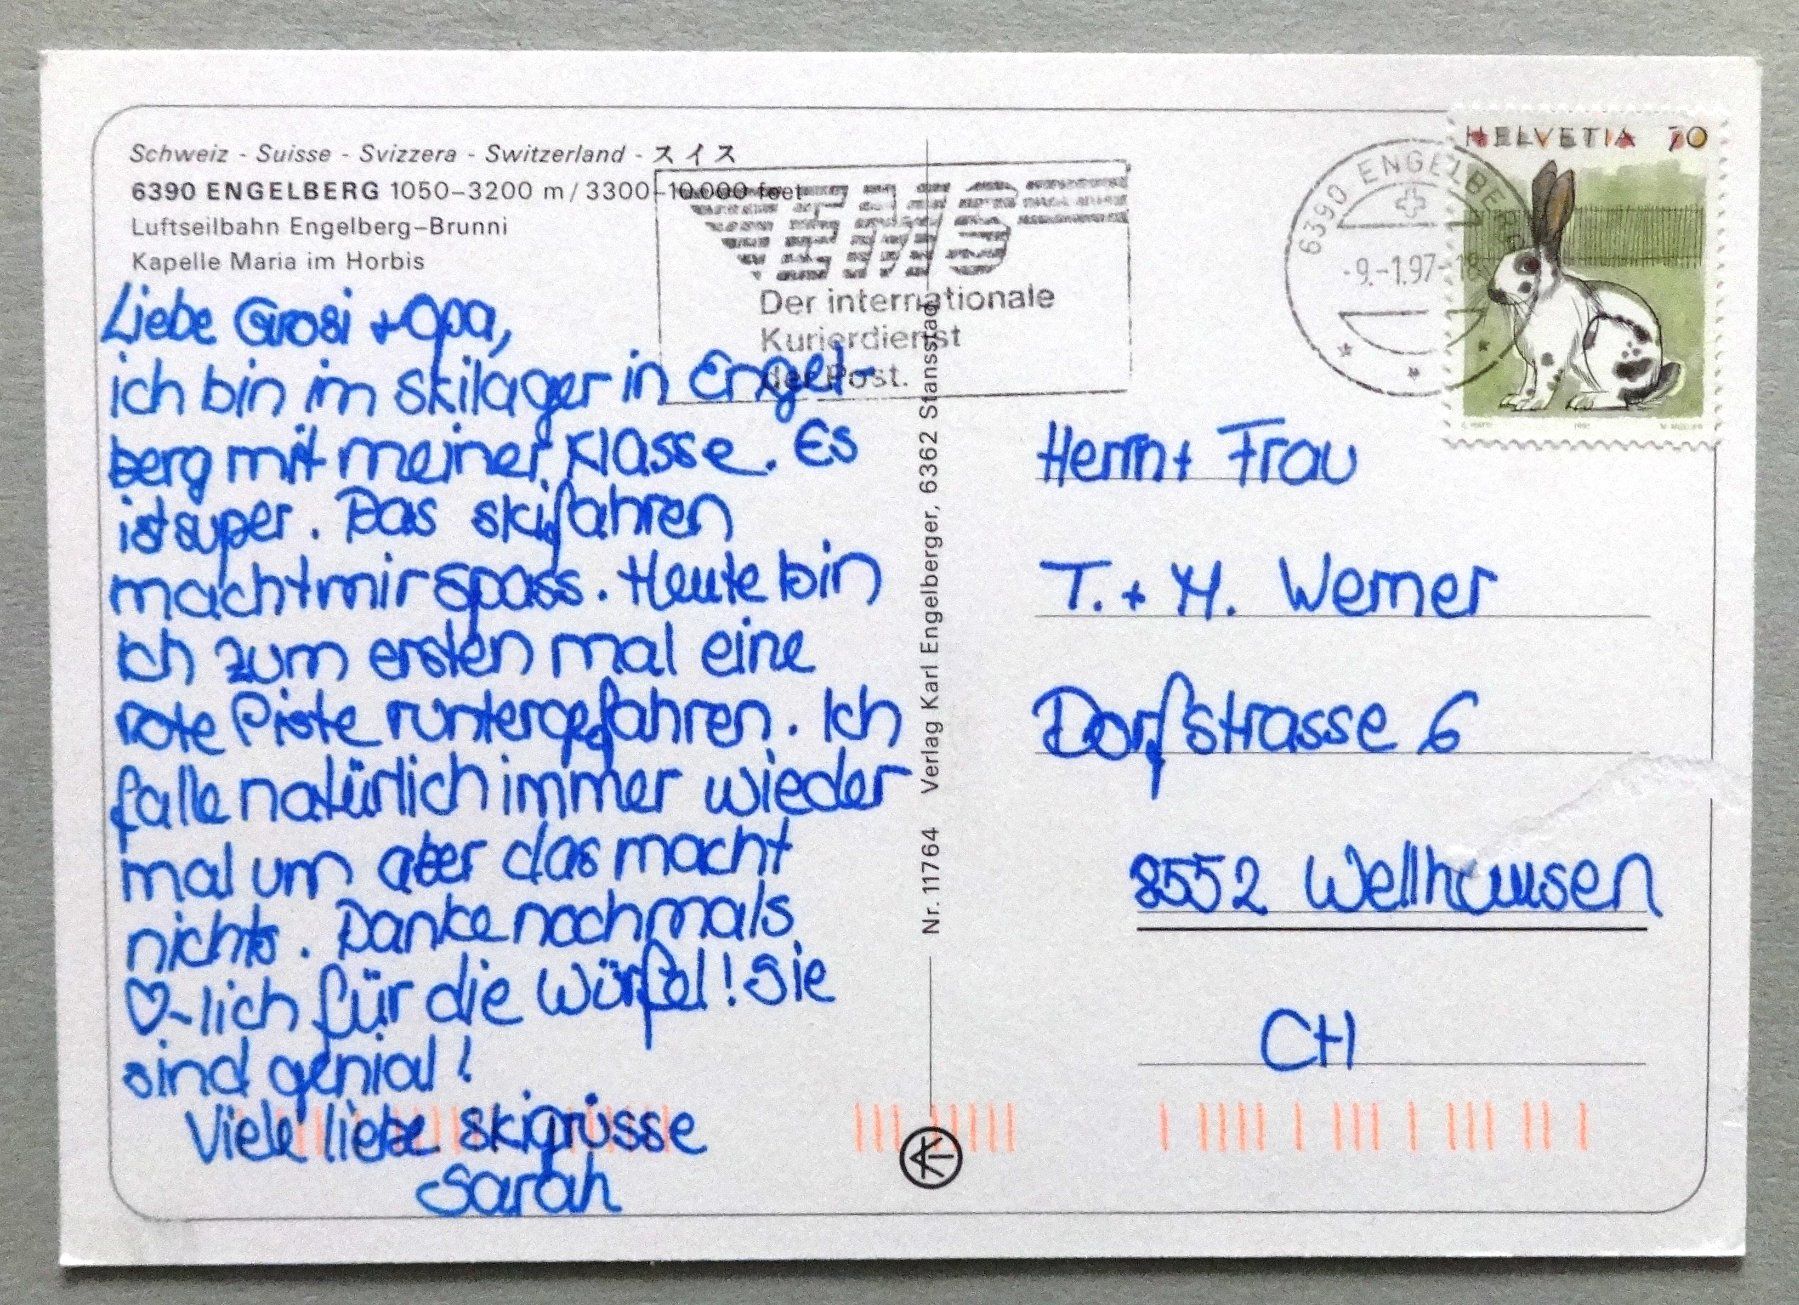 Schweiz - Suisse - Svizzera - Switzerland - スイス
6390 ENGELBERG 1050–3200 m / 3300–10000 feet
Luftseilbahn Engelberg–Brunni
Kapelle Maria im Horbis
EMS
Der internationale
Kurierdienst
der Post.
6390 ENGELBERG
-9.-1.97-18
HELVETIA 70
Liebe Grosi + Opa,
ich bin im skilager in Engel-
berg mit meiner Klasse. Es
ist super. Das skifahren
macht mir spass. Heute bin
ich zum ersten mal eine
rote Piste runtergefahren. Ich
falle natürlich immer wieder
mal um aber das macht
nichts. Danke nochmals
♡-lich für die Würfel! Sie
sind genial!
Viele liebe skigrüsse
Sarah
Nr. 11764 Verlag Karl Engelberger, 6362 Stansstad
Herrn + Frau
T. + M. Werner
Dorfstrasse 6
8552 Wellhausen
CH